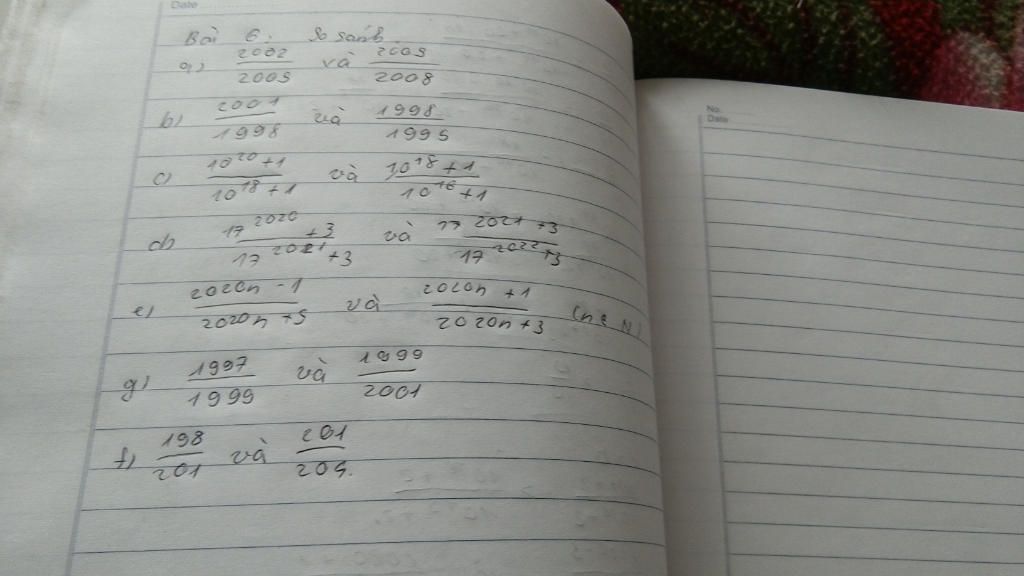 Date
Bài 6: So sánh
a) 2002/2005 và 2005/2008
b) 2001/1998 và 1998/1995
c) 10^20 + 1 / 10^18 + 1 và 10^18 + 1 / 10^16 + 1
d) 17^2020 + 3 / 17^2021 + 3 và 17^2021 + 3 / 17^2022 + 3
e) 2020n - 1 / 2020n + 5 và 2020n + 1 / 2020n + 3 (n ∈ N)
g) 1997/1999 và 1999/2001
f) 198/201 và 201/204.
No.
Date